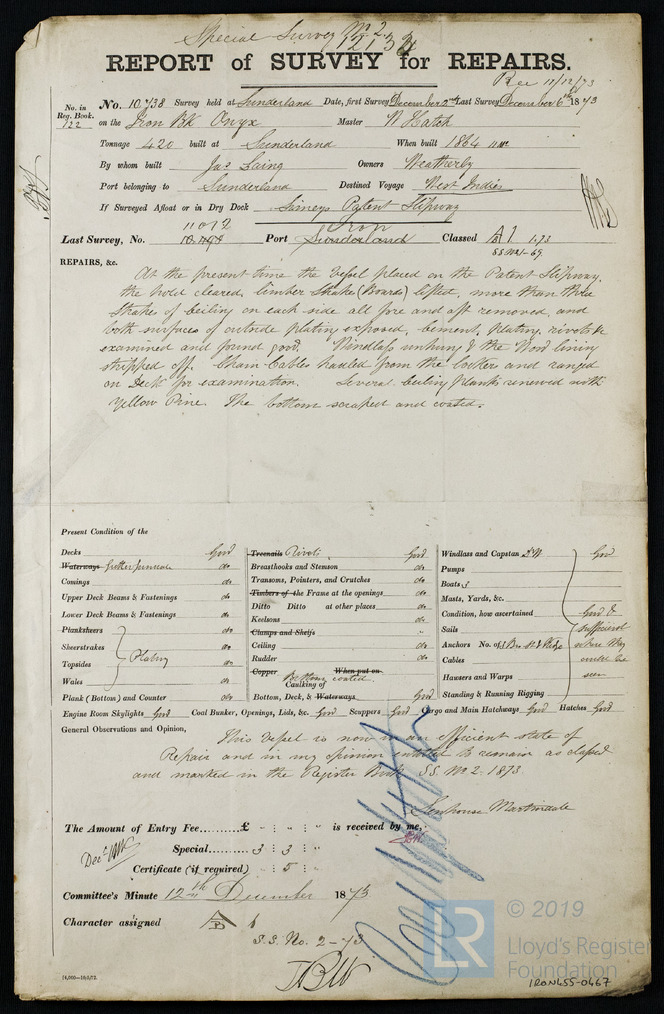 Special Survey No. 2
REPORT of SURVEY for REPAIRS.
Rec 11/12/73
No. in Reg. Book. 122
No. 10738 Survey held at Sunderland Date, first Survey December 2nd Last Survey December 6th 1873
on the Iron Bk Onyx Master W Hatch
Tonnage 420 built at Sunderland When built 1864
By whom built Jas Laing Owners Weatherby
Port belonging to Sunderland Destined Voyage West Indies
If Surveyed Afloat or in Dry Dock Patent Slipway
11012 Iron
Last Survey, No. Port Sunderland Classed A1 1.73
REPAIRS, &c.
At the present time the Vessel placed on the Patent Slipway,
the hold cleared, limber strakes (Boards) lifted, more than three
strakes of ceiling on each side all fore and aft removed, and
both surfaces of outside plating exposed, cement, plating, rivets &c
examined and found good. Windlass unhung & the Wood lining
stripped off. Chain Cables hauled from the lockers and ranged
on Deck for examination. Several ceiling planks renewed with
Yellow Pine. The bottom scraped and coated.
Present Condition of the
Decks Good
Waterways do
Comings do
Upper Deck Beams & Fastenings do
Lower Deck Beams & Fastenings do
Planksheers do
Sheerstrakes do
Topsides Plating do
Wales do
Plank (Bottom) and Counter do
Treenails Rivets Good
Breasthooks and Stemson do
Transoms, Pointers, and Crutches do
Timbers of the Frame at the openings do
Ditto Ditto at other places do
Keelsons do
Clamps and Shelfs "
Ceiling do
Rudder do
Copper When put on
Bottom coated.
Caulking of
Bottom, Deck, & Waterways Good
Windlass and Capstan Good
Pumps
Boats
Masts, Yards, &c.
Condition, how ascertained Good &
Sails sufficient
Anchors No. of where they
Cables could be
Hawsers and Warps seen
Standing & Running Rigging
Engine Room Skylights Good Coal Bunker, Openings, Lids, &c. Good Scuppers Good Cargo and Main Hatchways Good Hatches Good
General Observations and Opinion,
This Vessel is now in an efficient state of
Repair and in my opinion entitled to remain as classed
and marked in the Register Book S.S. No 2. 1873
Senhouse Martindale
The Amount of Entry Fee......£ " : " : " is received by me,
Special...... 3 : 3 : "
Certificate (if required) " : 5 : "
Committee's Minute 12th December 1873
Character assigned A 1
S.S. No. 2-73
© 2019
LR
Lloyd's Register
Foundation
IRON455-0467